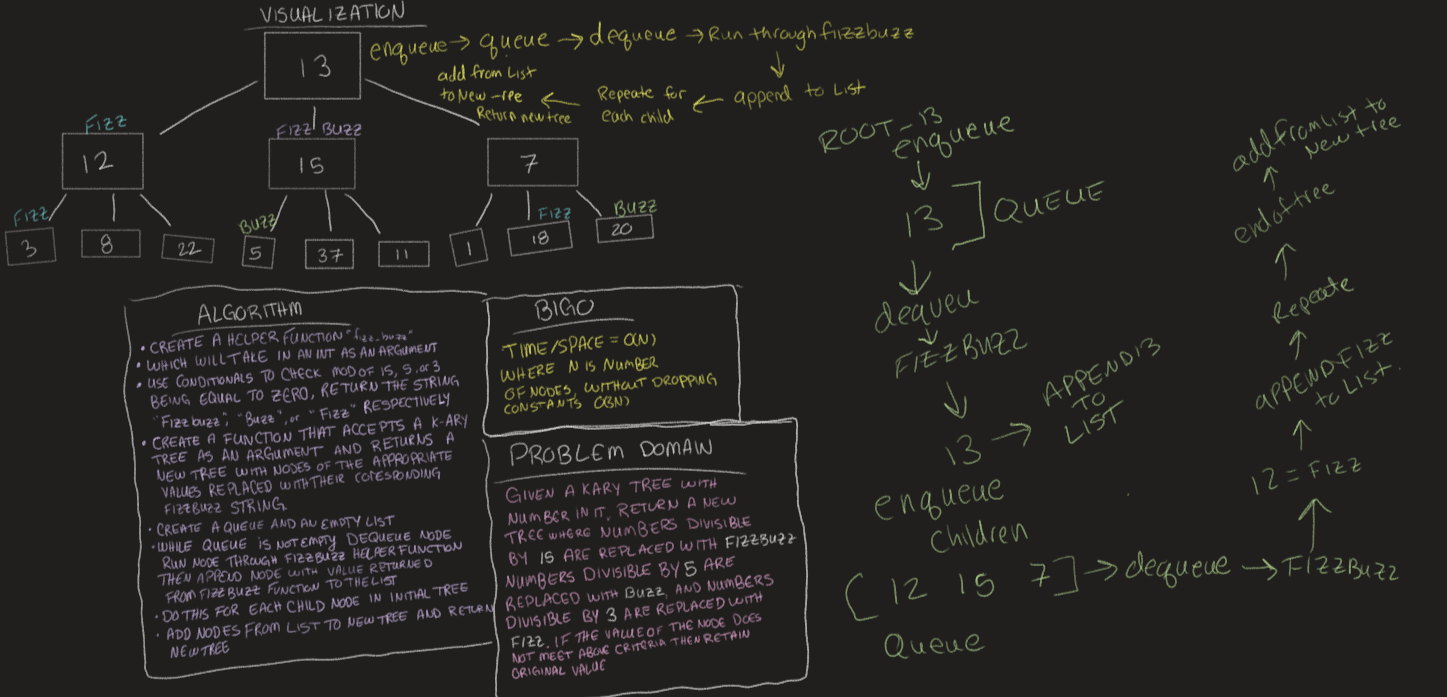 VISUALIZATION
13
enqueue → queue → dequeue → Run through fizzbuzz
append to List
Repeate for
each child
add from List
to New -ree
Return newtree
FIZZ
12
FIZZ BUZZ
15
7
FIZZ
3
8
22
BUZZ
5
37
11
1
FIZZ
18
BUZZ
20
ALGORITHM
• CREATE A HELPER FUNCTION "fizz_buzz"
• WHICH WILL TAKE IN AN INT AS AN ARGUMENT
• USE CONDITIONALS TO CHECK MOD OF 15, 5, or 3
BEING EQUAL TO ZERO, RETURN THE STRING
"Fizzbuzz", "Buzz", or "Fizz" RESPECTIVELY
• CREATE A FUNCTION THAT ACCEPTS A K-ARY
TREE AS AN ARGUMENT AND RETURNS A
NEW TREE WITH NODES OF THE APPROPRIATE
VALUES REPLACED WITH THEIR CORESPONDING
FIZZBUZZ STRING
• CREATE A QUEUE AND AN EMPTY LIST
• WHILE QUEUE IS NOT EMPTY DEQUEUE NODE
RUN NODE THROUGH FIZZBUZZ HELPER FUNCTION
THEN APPEND NODE WITH VALUE RETURNED
FROM FIZZBUZZ FUNCTION TO THE LIST
• DO THIS FOR EACH CHILD NODE IN INITIAL TREE
• ADD NODES FROM LIST TO NEW TREE AND RETURN
NEW TREE
BIGO
TIME/SPACE = O(N)
WHERE N IS NUMBER
OF NODES, WITHOUT DROPPING
CONSTANTS O(3N)
PROBLEM DOMAIN
GIVEN A KARY TREE WITH
NUMBER IN IT, RETURN A NEW
TREE WHERE NUMBERS DIVISIBLE
BY 15 ARE REPLACED WITH FIZZBUZZ
NUMBERS DIVISIBLE BY 5 ARE
REPLACED WITH BUZZ, AND NUMBERS
DIVISIBLE BY 3 ARE REPLACED WITH
FIZZ, IF THE VALUE OF THE NODE DOES
NOT MEET ABOVE CRITERIA THEN RETAIN
ORIGINAL VALUE
ROOT - 13
enqueue
13 ] QUEUE
dequeu
FIZZBUZZ
13 → APPEND 13
TO
LIST
enqueue
children
[ 12 15 7 ] → dequeue → FIZZBUZZ
Queue
12 = FIZZ
APPEND FIZZ
to List.
Repeate
end of tree
add from List to
New tree